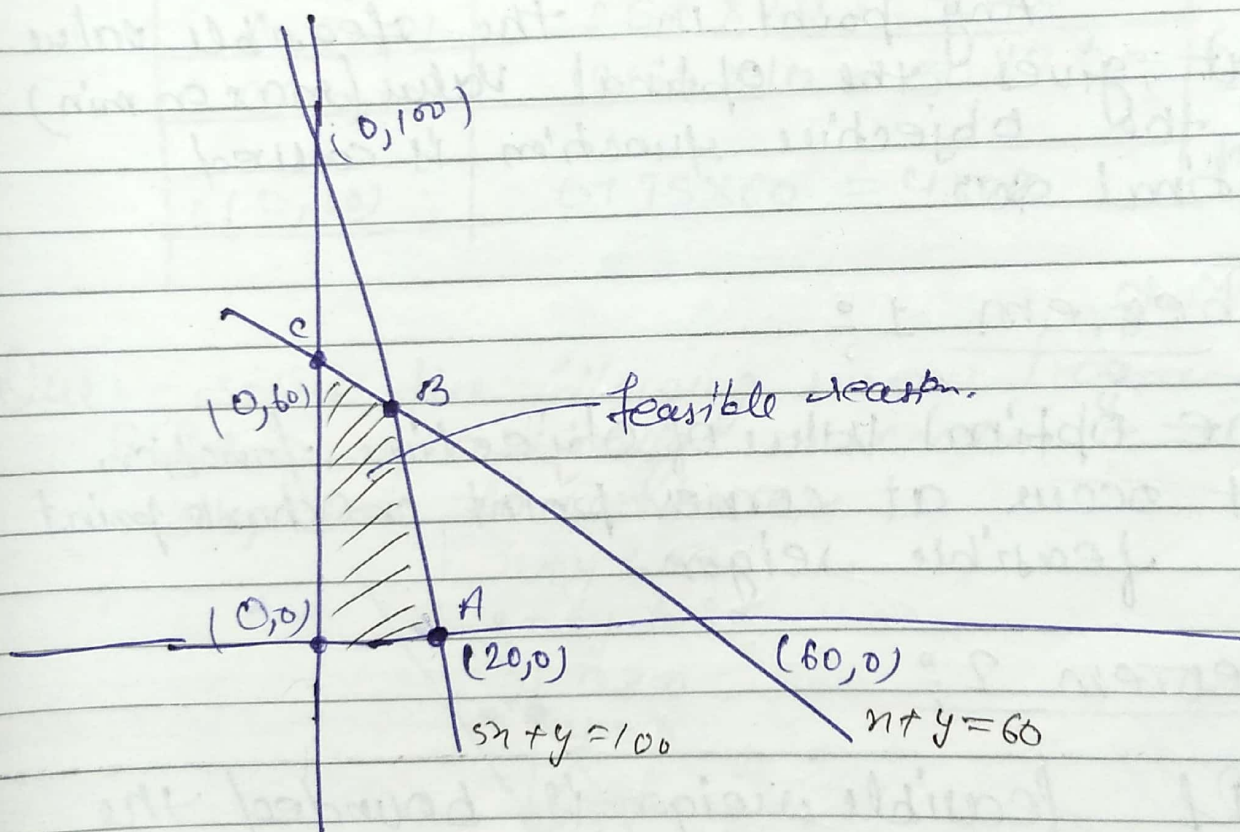 (0,100)
C
(0,60)
B
feasible
(0,0)
A
(20,0)
(60,0)
5x + y = 100
x + y = 60